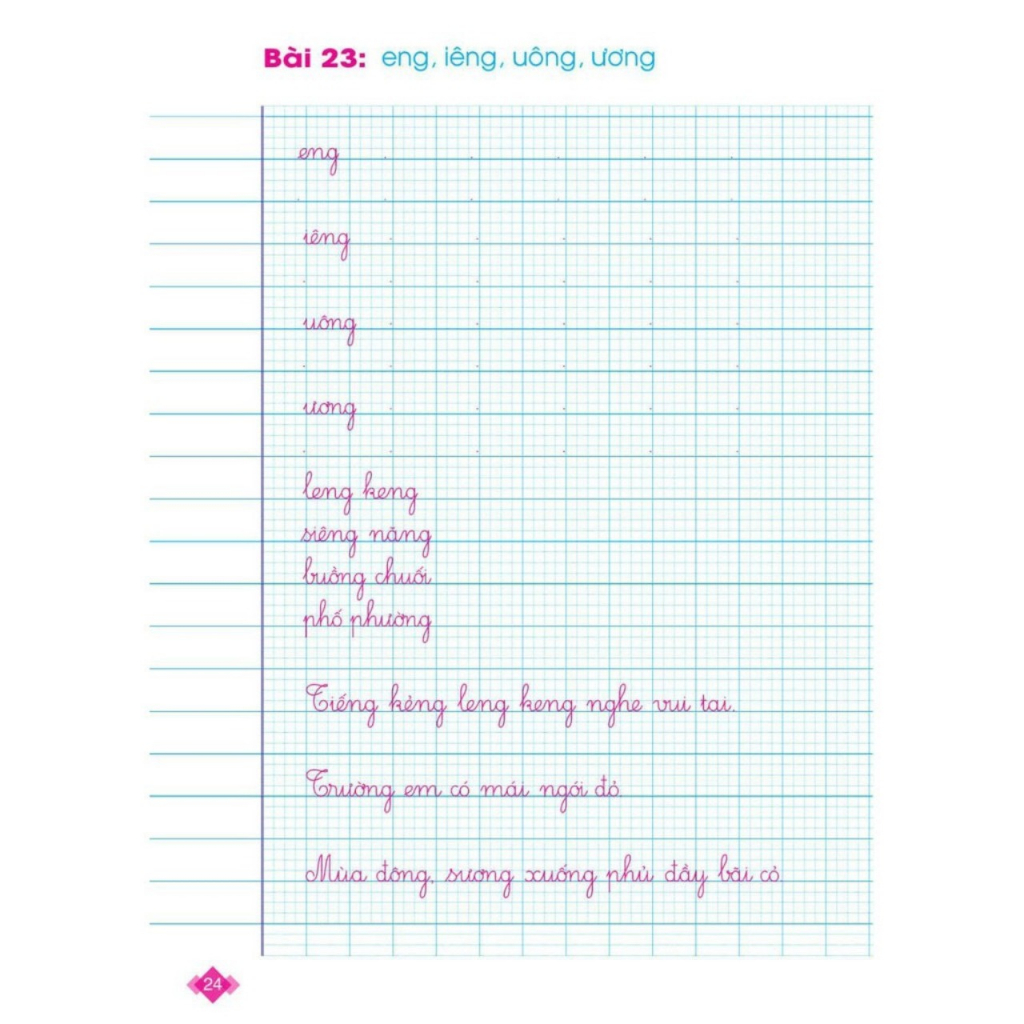 Bài 23: eng, iêng, uông, ương
eng
iêng
uông
ương
leng keng
siêng năng
buồng chuối
phố phường
Tiếng kẻng leng keng nghe vui tai.
Trường em có mái ngói đỏ.
Mùa đông, sương xuống phủ đầy bãi cỏ.
24